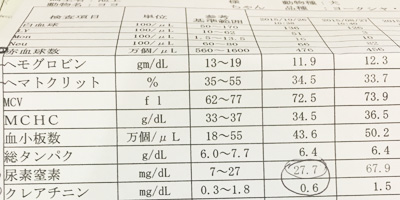 検査項目 単位 参考基準範囲
白血球 /μL
Ly
Mon /μL
Neu /μL
赤血球数 万個/μL 560~1600 476 456
ヘモグロビン gm/dL 13~19 11.9 12.3
ヘマトクリット % 35~55 34.5 33.7
MCV fl 62~77 72.5 73.9
MCHC g/dL 33~37 34.5 36.5
血小板数 万個/μL 18~55 43.6 50.2
総タンパク g/dL 6.0~7.7 6.4 6.4
尿素窒素 mg/dL 7~27 27.7 67.9
クレアチニン mg/dL 0.3~1.8 0.6 1.5